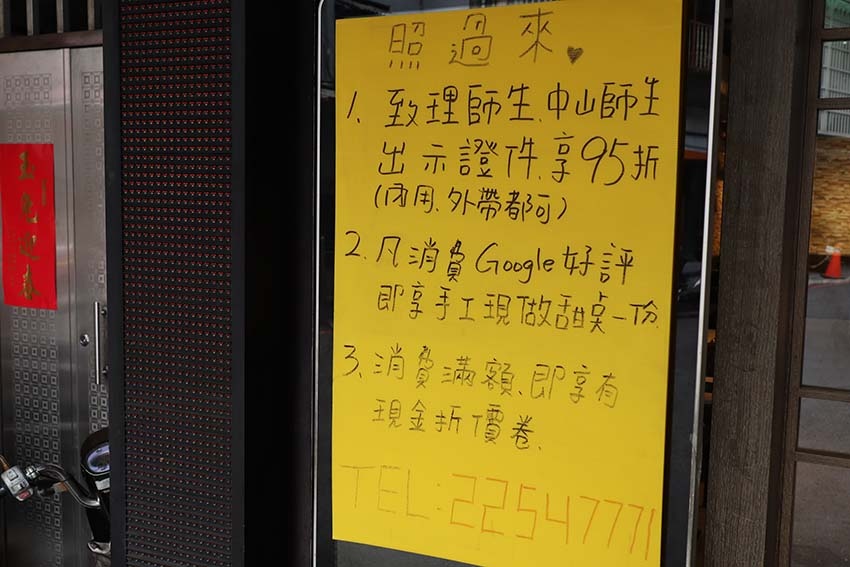 照過來♥
1. 致理師生、中山師生
出示證件、享95折
(內用、外帶都可)
2. 凡消費Google好評
即享手工現做甜桌一份.
3、消費滿額、即享有
現金折價卷.
TEL:22547771
玉兔迎春